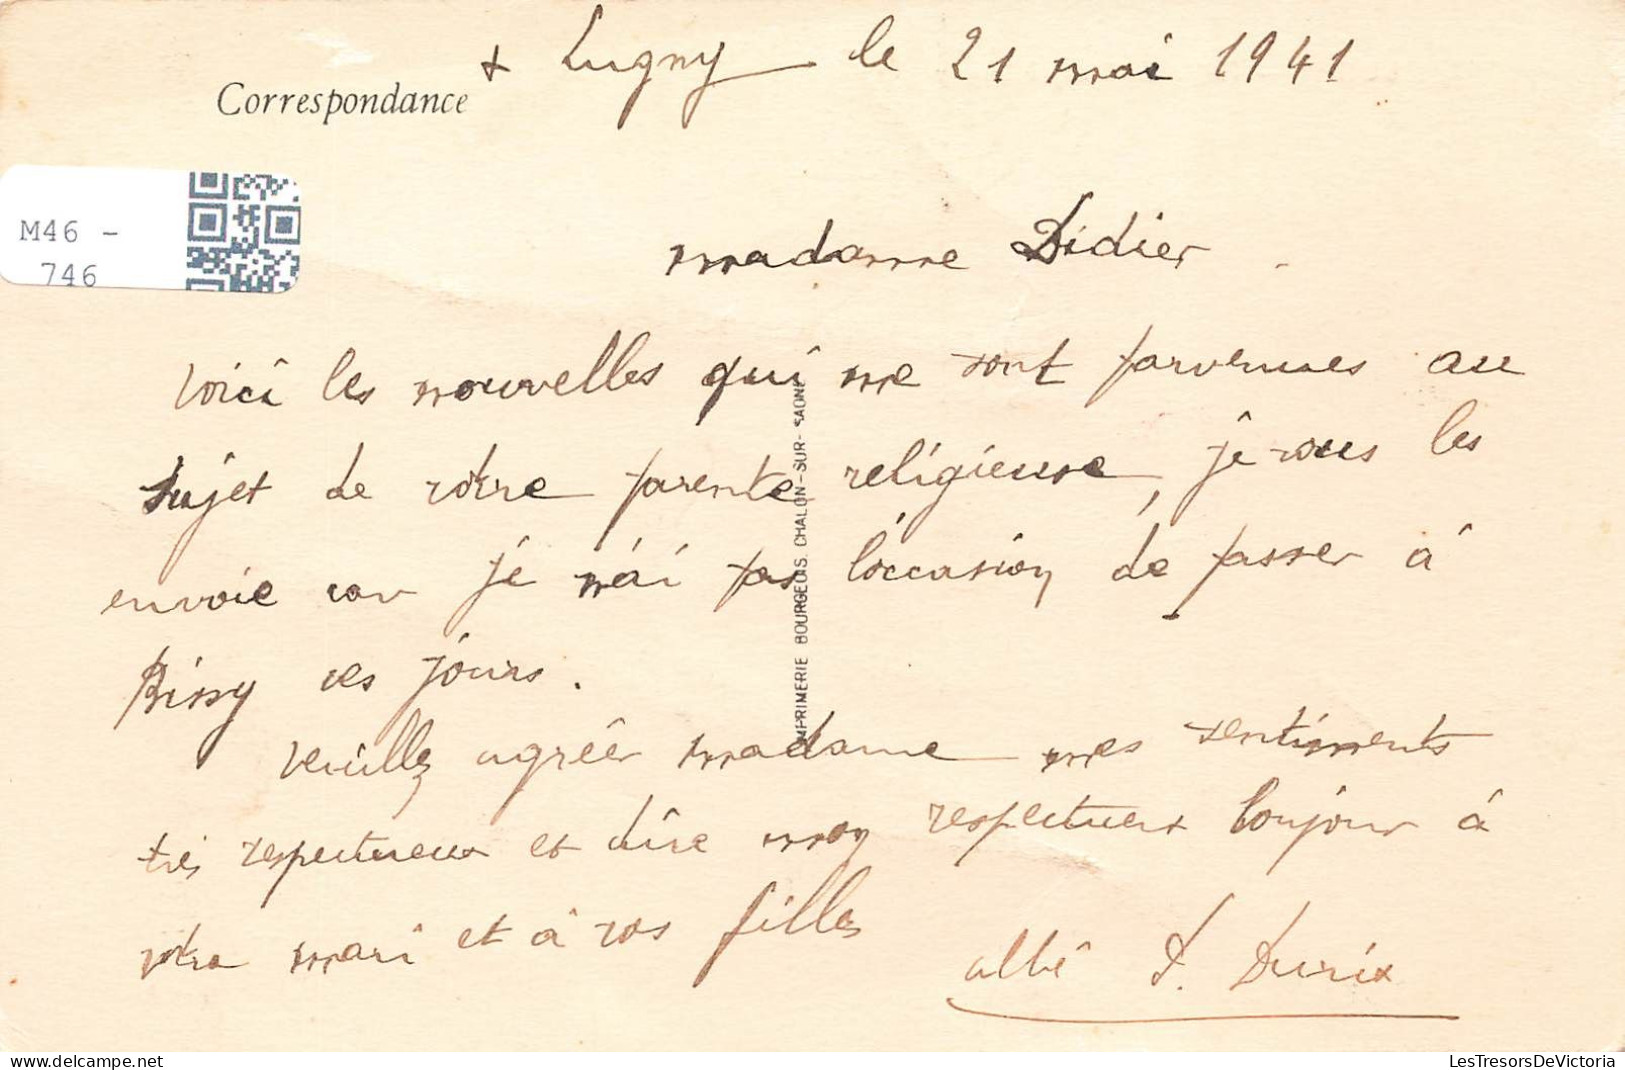 + Lugny le 21 mai 1941
Correspondance
M46 -
746
madame Didier
Voici les nouvelles qui me sont parvenues au
sujet de votre parente religieuse, je vous les
envoie car je n'ai pas l'occasion de passer à
Bissy ces jours.
veuillez agréer madame mes sentiments
très respectueux et dire mon respectueux bonjour à
votre mari et à vos filles
abbé Durix
IMPRIMERIE BOURGEOIS, CHALON-SUR-SAONE
LesTresorsDeVictoria